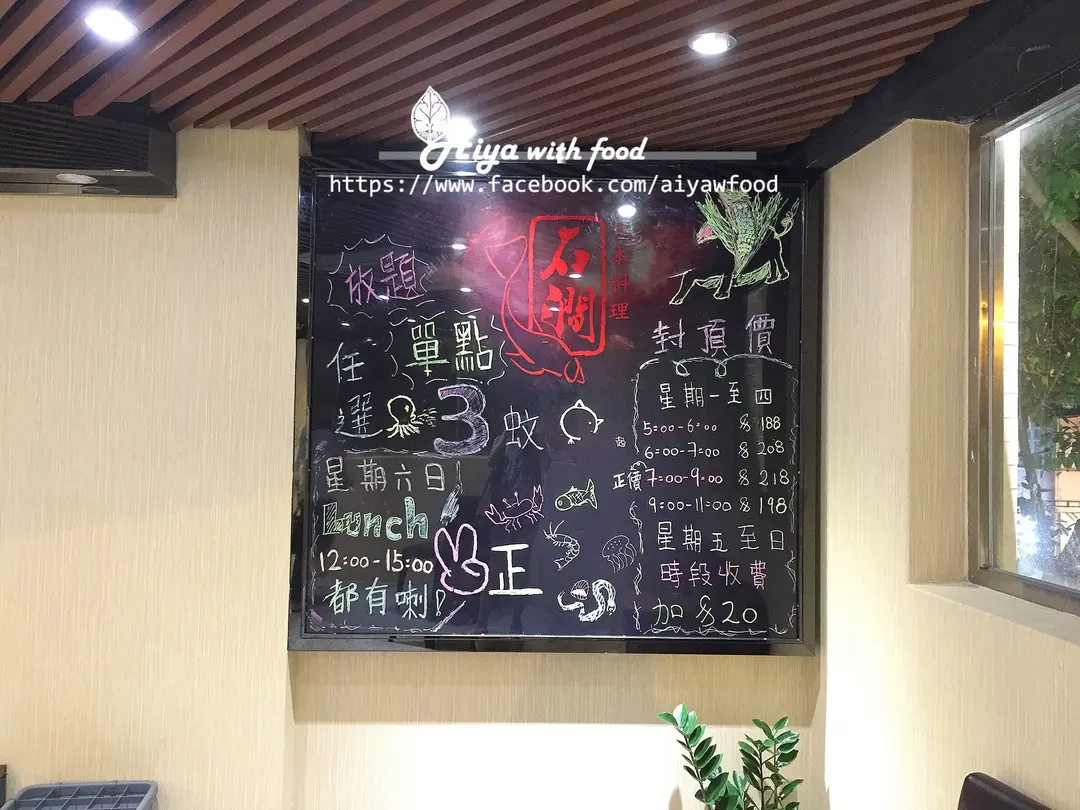 Aiya with food
https://www.facebook.com/aiyawfood
石澗
日本料理
放題
單點
任選3蚊起
星期六日
Lunch
12:00-15:00
都有喇!
正
封頂價
星期一至四
5:00-6:00 $188
6:00-7:00 $208
正價 7:00-9:00 $218
9:00-11:00 $198
星期五至日
時段收費
加$20